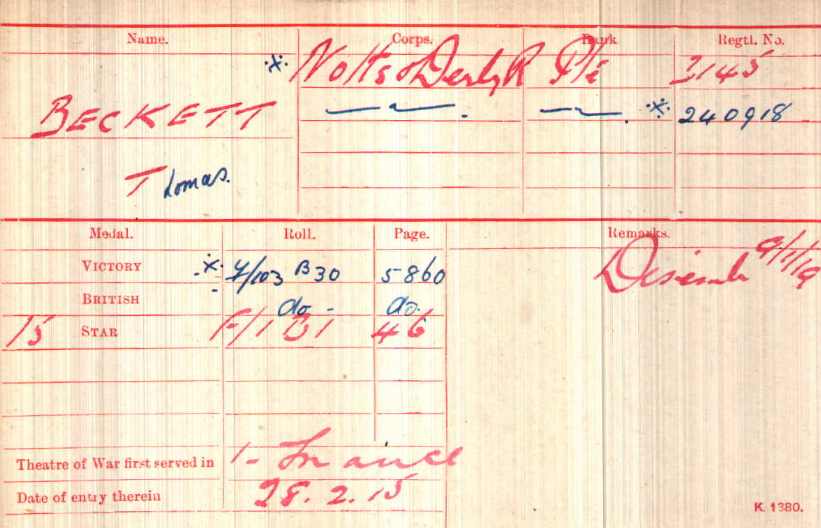 Name. Corps. Rank Regtl. No.
·x· Notts & Derby R Pte 2145
BECKETT —"—. —"—. ·x· 240918
Thomas.
Medal. Roll. Page. Remarks.
VICTORY ·x· 5860 9/1/19
BRITISH do - do.
15 STAR F/1 B1 46
Theatre of War first served in 1- France
Date of entry therein 28.2.15
K. 1380.